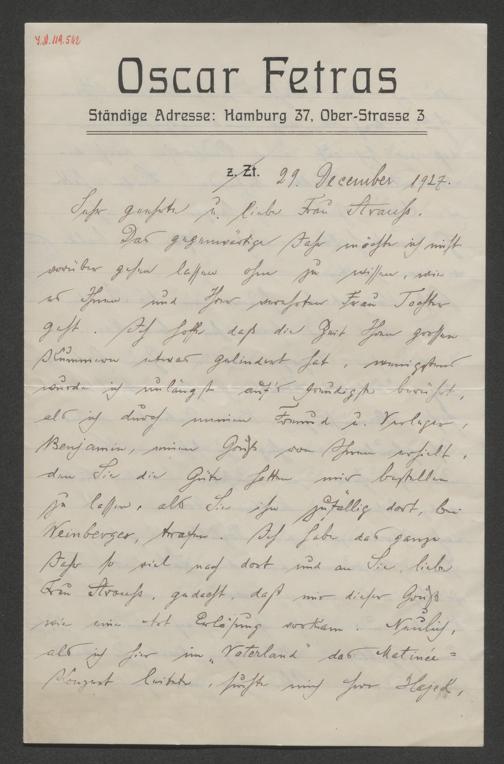 I.N. 119.542
Oscar Fetras
Ständige Adresse: Hamburg 37, Ober-Strasse 3
z. Zt. 29. December 1927.
Sehr geehrte u. liebe Frau Strauss.
Das gegenwärtige Jahr möchte ich nicht
vorüber gehen lassen ohne zu wissen, wie
es Ihnen und Ihrer verehrten Frau Tochter
geht. Ich hoffe daß die Zeit Ihren großen
Kummer etwas gelindert hat, wenigstens
wurde ich unlängst auf's freudigste berührt,
als ich durch meinen Freund u. Verleger,
Benjamin, einen Gruß von Ihnen erhielt,
den Sie die Güte hatten mir bestellen
zu lassen, als Sie ihn zufällig dort, bei
Weinberger, trafen. Ich habe das ganze
Jahr so viel nach dort und an Sie, liebe
Frau Strauss, gedacht, daß mir dieser Gruß
wie eine Art Erlösung vorkam. Neulich,
als ich hier im "Vaterland" das Matinée-
Konzert leitete, suchte mich Herr Hajek,